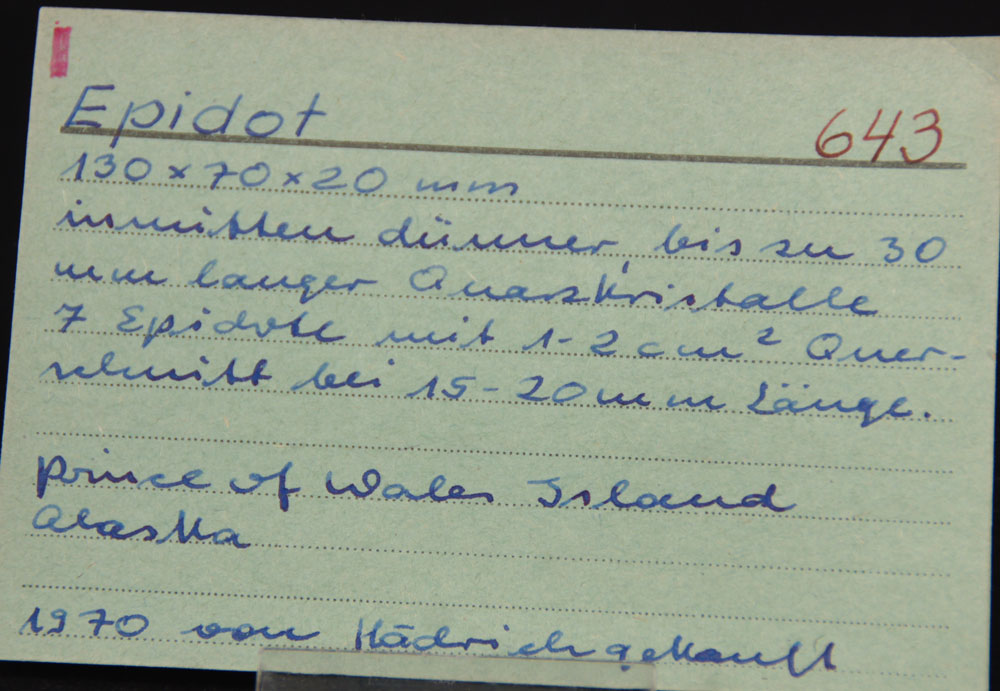 Epidot 643
130 x 70 x 20 mm
inmitten dünner, bis zu 30
mm langer Quarzkristalle
7 Epidote mit 1-2 cm² Quer-
schnitt bei 15-20 mm Länge.
Prince of Wales Island
Alaska
1970 von Hädrich gekauft